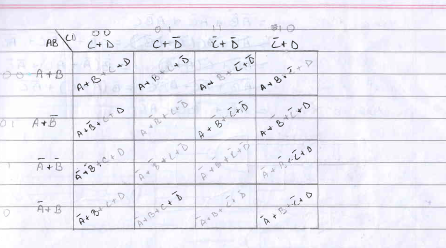 CD 00 01 11 10
AB C+D C+D̅ C̅+D̅ C̅+D
00 A+B A+B+C+D A+B+C+D̅ A+B+C̅+D̅ A+B+C̅+D
01 A+B̅ A+B̅+C+D A+B̅+C+D̅ A+B̅+C̅+D̅ A+B̅+C̅+D
1 A̅+B̅ A̅+B̅+C+D A̅+B̅+C+D̅ A̅+B̅+C̅+D̅ A̅+B̅+C̅+D
0 A̅+B A̅+B+C+D A̅+B+C+D̅ A̅+B+C̅+D̅ A̅+B+C̅+D